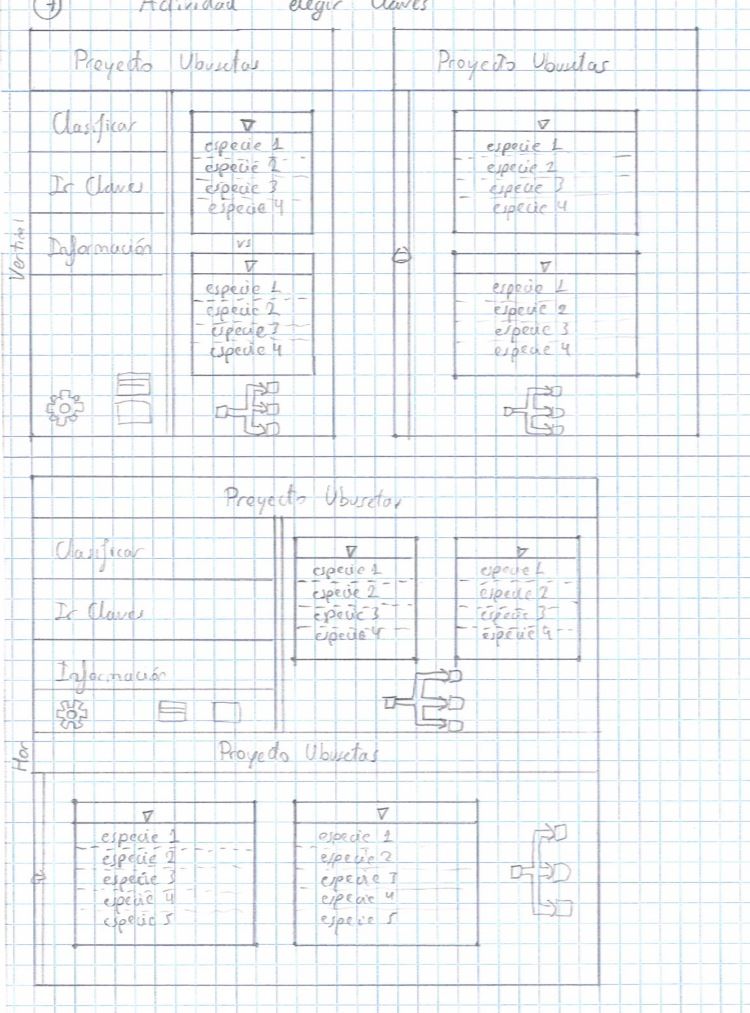 7 Actividad elegir claves
Vertical
Proyecto Ubusetas
Clasificar
Ir Claves
Información
especie 1
especie 2
especie 3
especie 4
vs
especie 1
especie 2
especie 3
especie 4
Proyecto Ubusetas
especie 1
especie 2
especie 3
especie 4
especie 1
especie 2
especie 3
especie 4
Hor
Proyecto Ubusetas
Clasificar
Ir Claves
Información
especie 1
especie 2
especie 3
especie 4
especie 1
especie 2
especie 3
especie 4
Proyecto Ubusetas
especie 1
especie 2
especie 3
especie 4
especie 5
especie 1
especie 2
especie 3
especie 4
especie 5